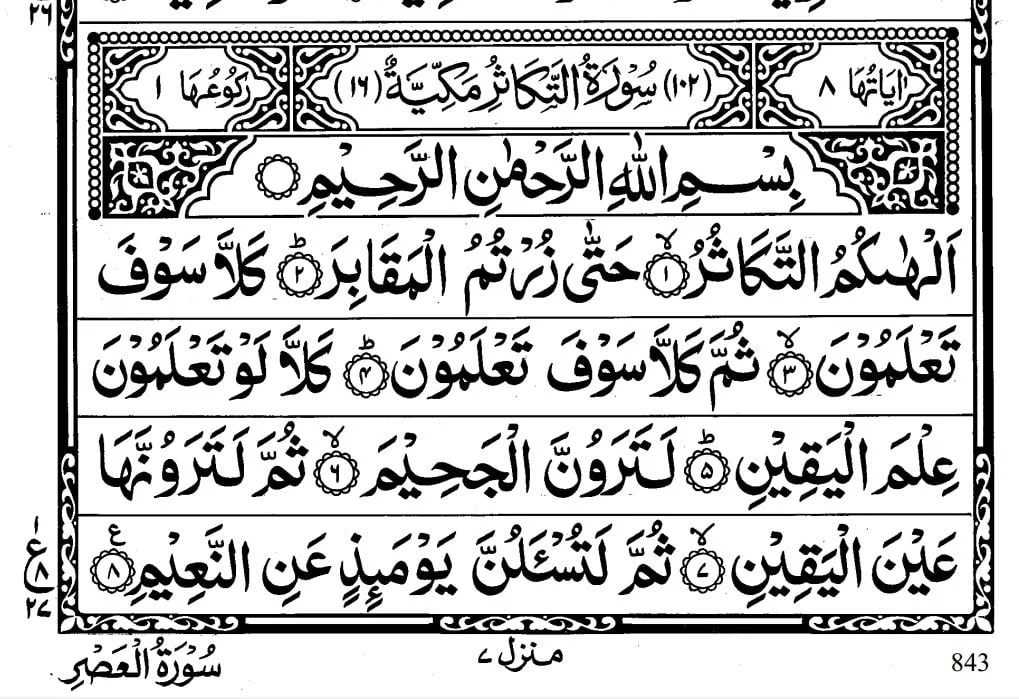 ٢٦
اٰیَاتُهَا ٨ (١٠٢) سُوْرَةُ التَّكَاثُرِ مَكِّيَّةٌ (١٦) رُكُوْعُهَا ١
بِسْمِ اللّٰهِ الرَّحْمٰنِ الرَّحِيْمِ
اَلْهٰىكُمُ التَّكَاثُرُ ﴿١﴾ۙ حَتّٰى زُرْتُمُ الْمَقَابِرَ ﴿٢﴾ؕ كَلَّا سَوْفَ
تَعْلَمُوْنَ ﴿٣﴾ۙ ثُمَّ كَلَّا سَوْفَ تَعْلَمُوْنَ ﴿۴﴾ؕ كَلَّا لَوْ تَعْلَمُوْنَ
عِلْمَ الْيَقِيْنِ ﴿۵﴾ؕ لَتَرَوُنَّ الْجَحِيْمَ ﴿۶﴾ۙ ثُمَّ لَتَرَوُنَّهَا
عَيْنَ الْيَقِيْنِ ﴿۷﴾ۙ ثُمَّ لَتُسْـَٔلُنَّ يَوْمَئِذٍ عَنِ النَّعِيْمِ ﴿۸﴾ع
١
ع
٨
٢٧
سُوْرَةُ الْعَصْرِ منزل ۷ 843